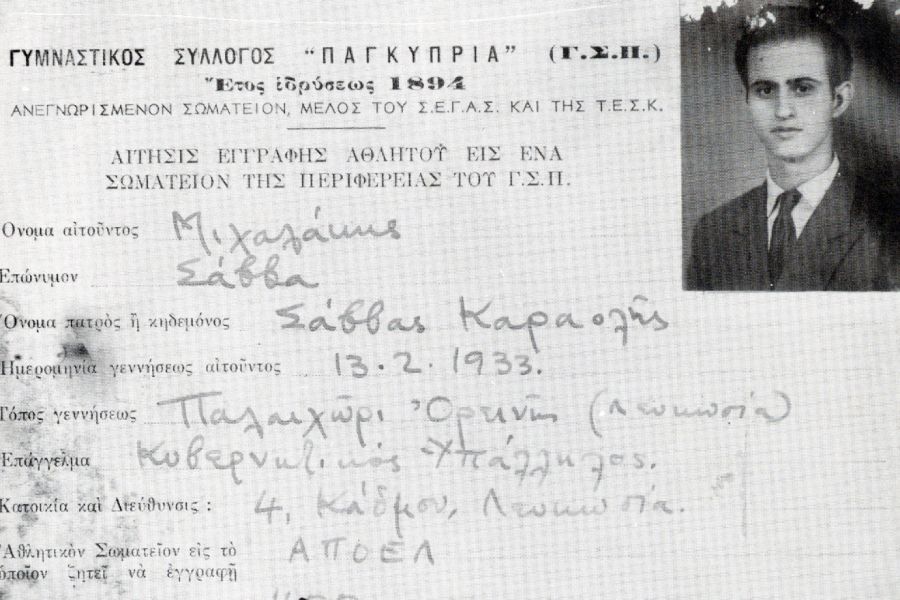 ΓΥΜΝΑΣΤΙΚΟΣ ΣΥΛΛΟΓΟΣ "ΠΑΓΚΥΠΡΙΑ" (Γ.Σ.Π.)
Ἔτος ἱδρύσεως 1894
ΑΝΕΓΝΩΡΙΣΜΕΝΟΝ ΣΩΜΑΤΕΙΟΝ, ΜΕΛΟΣ ΤΟΥ Σ.Ε.Γ.Α.Σ. ΚΑΙ ΤΗΣ Τ.Ε.Σ.Κ.
ΑΙΤΗΣΙΣ ΕΓΓΡΑΦΗΣ ΑΘΛΗΤΟΥ ΕΙΣ ΕΝΑ
ΣΩΜΑΤΕΙΟΝ ΤΗΣ ΠΕΡΙΦΕΡΕΙΑΣ ΤΟΥ Γ.Σ.Π.
Ὄνομα αἰτοῦντος Μιχαλάκης
Ἐπώνυμον Σάββα
Ὄνομα πατρὸς ἢ κηδεμόνος Σάββας Καραολῆς
Ἡμερομηνία γεννήσεως αἰτοῦντος 13.2.1933.
Τόπος γεννήσεως Παλαιχῶρι Ὀρεινῆς (Λευκωσία)
Ἐπάγγελμα Κυβερνητικός Ὑπάλληλος.
Κατοικία καὶ Διεύθυνσις : 4, Κάδμου, Λευκωσία.
Ἀθλητικὸν Σωματεῖον εἰς τὸ
ὁποῖον ζητεῖ νὰ ἐγγραφῇ ΑΠΟΕΛ